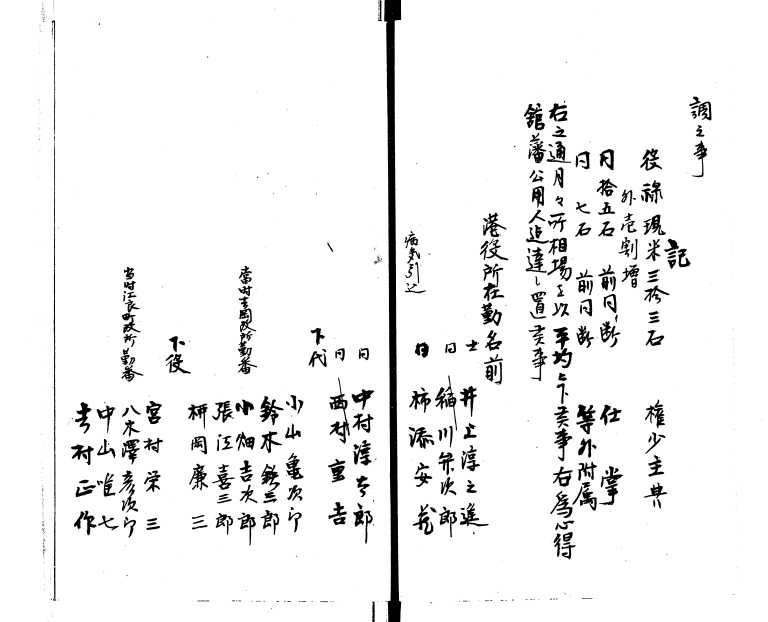 調之事
記
役禄現米三拾三石 権少主典
外壱割増
同拾五石 前同断 仕掌
同 七石 前同断 等外附属
右之通月々所相場を以平均被下候事右為心得
舘藩公用人迄達し置候事
港役所在勤名前
士 井上淳之進
同 稲川弁次郎
病気引込
同 柿添安蔵
同 中村淳太郎
同 西村重吉
下代
小山亀次郎
鈴木鉄三郎
當时吉岡改所勤番
小畑吉次郎
張江喜三郎
柳岡廉三
下役
宮村栄三
当时江良町改所勤番
八木澤彦次郎
中山唯七
吉村正作